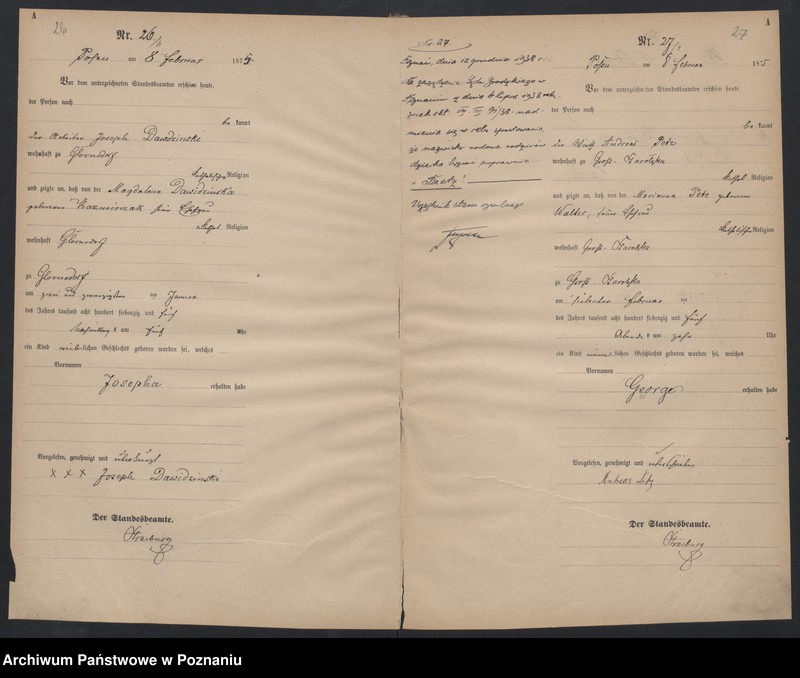 A
26
Nr. 26
Posen am 8 Februar 1875.
Vor dem unterzeichneten Standesbeamten erschien heute,
der Person nach
be kannt
der Arbeiter Joseph Dawidzinski
wohnhaft zu Glownodorf
katholischer Religion
und zeigte an, daß von der Magdalena Dawidzinska
geborene Kazmierczak seine Ehefrau
kathol. Religion
wohnhaft Glownodorf
zu Glownodorf
am zwei und zwanzigsten Januar
des Jahres tausend acht hundert siebenzig und fünf
Nachmittag s um fünf Uhr
ein Kind weib lichen Geschlechts geboren worden sei, welches
Vornamen
Josepha erhalten habe
Vorgelesen, genehmigt und
x x x Joseph Dawidzinski
Der Standesbeamte.
Strasburg
No. 27.
Poznań, dnia 12 grudnia 1938 r.
Na zarządzenie Sądu Grodzkiego w
Poznaniu z dnia 6 lipca 1938 rok.
znak akt. 99/38. nad-
mienia się w celu sprostowania
że nazwisko rodowe rodziców
dziecka brzmi poprawnie
Urzędnik stanu cywilnego
A
27
Nr. 27
Posen am 8 Februar 1875
Vor dem unterzeichneten Standesbeamten erschien heute,
der Person nach
be kannt
der Wirth Andreas Petz
wohnhaft zu Groß-
kathol. Religion
und zeigte an, daß von der Marianna Petz geborene
Walter, seine Ehefrau
katholischer Religion
wohnhaft Groß-
zu Groß-
am siebenten Februar
des Jahres tausend acht hundert siebenzig und fünf
Abend s um zehn Uhr
ein Kind männ lichen Geschlechts geboren worden sei, welches
Vornamen
George erhalten habe
Vorgelesen, genehmigt und unterschrieben
Andreas
Der Standesbeamte.
Strasburg
Archiwum Państwowe w Poznaniu